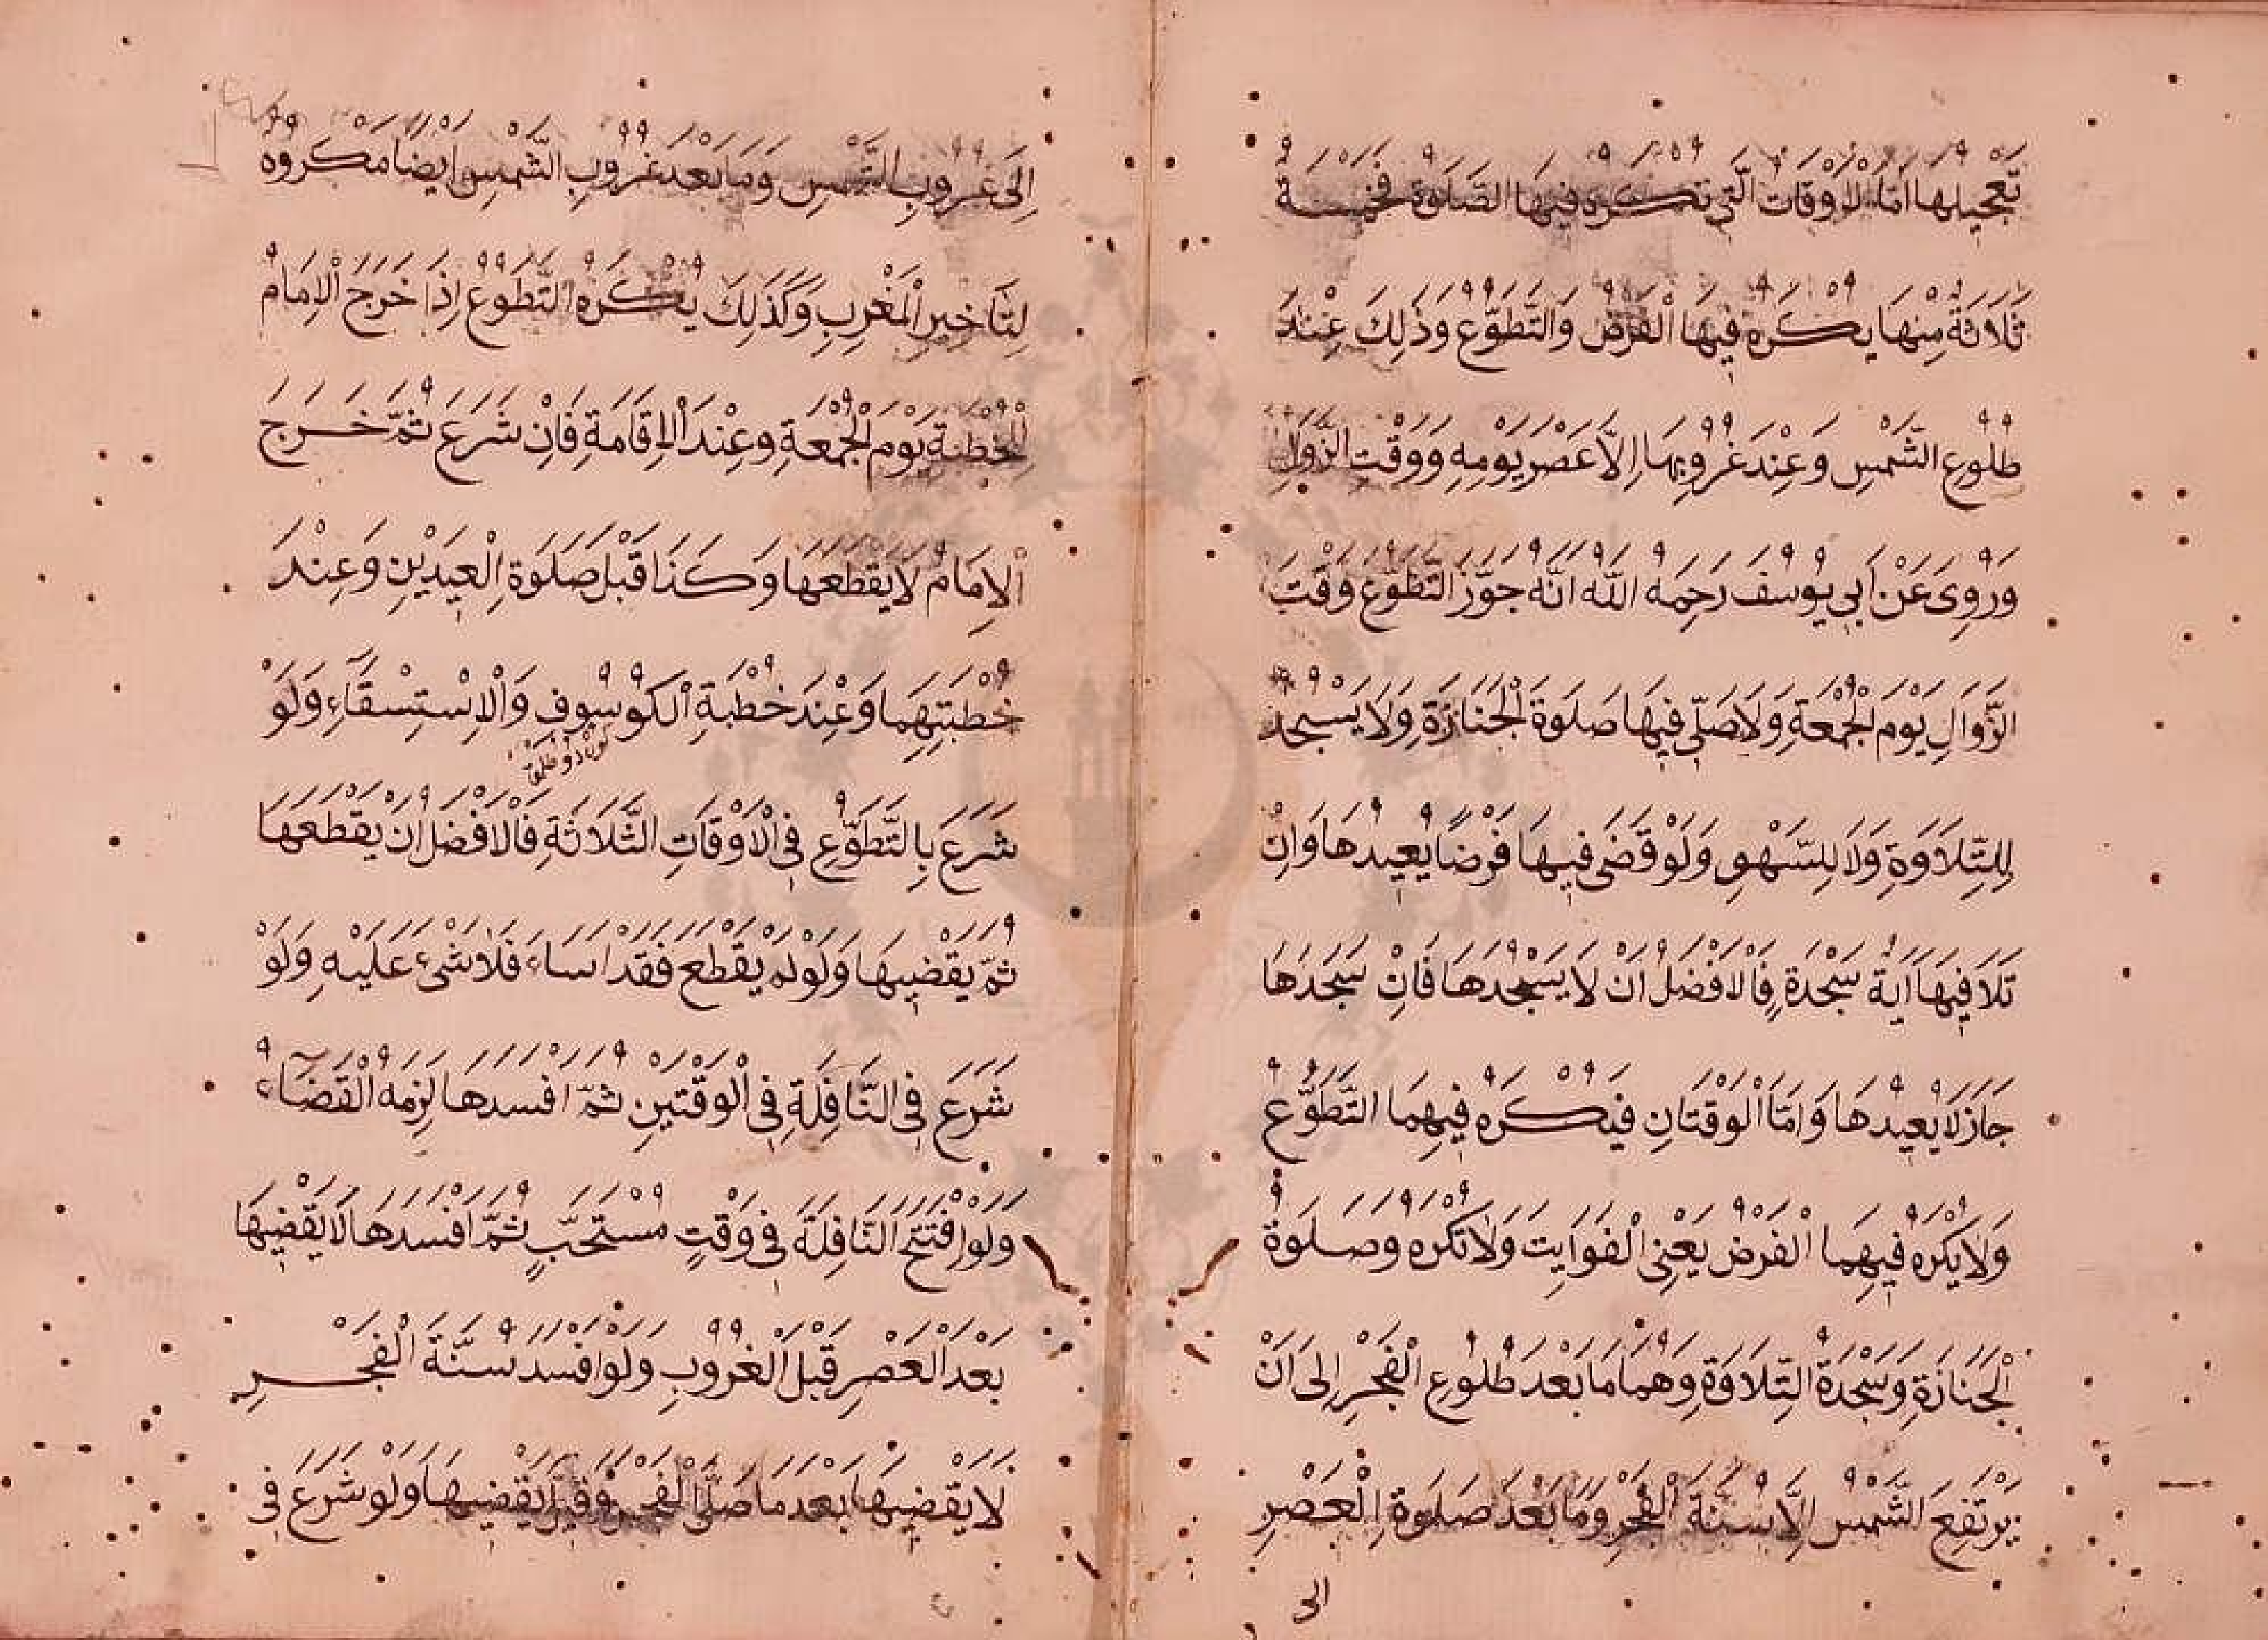 تَعْجِيلُهَا اَمَّا الْاَوْقَاتُ الَّتِي تُكْرَهُ فِيهَا الصَّلَوةُ فَخَمْسَةٌ
ثَلَاثَةٌ مِنْهَا يُكْرَهُ فِيهَا الْفَرْضُ وَالتَّطَوُّعُ وَذَلِكَ عِنْدَ
طُلُوعِ الشَّمْسِ وَعِنْدَ غُرُوبِهَا اِلَّا عَصْرَ يَوْمِهِ وَوَقْتَ الزَّوَالِ
وَرُوِىَ عَنْ اَبِي يُوسُفَ رَحِمَهُ اللّٰهُ اَنَّهُ جَوَّزَ التَّطَوُّعَ وَقْتَ
الزَّوَالِ يَوْمَ الْجُمْعَةِ وَلَا صَلِّي فِيهَا صَلَوةَ الْجَنَازَةِ وَلَا يَسْجُدُ
لِلتِّلَاوَةِ وَلَا لِلسَّهْوِ وَلَوْ قَضَى فِيهَا فَرْضًا يُعِيدُهَا وَاِنْ
تَلَا فِيهَا اٰيَةَ سَجْدَةٍ فَالْاَفْضَلُ اَنْ لَا يَسْجُدَهَا فَاِنْ سَجَدَهَا
جَازَ لَا يُعِيدُهَا وَاَمَّا الْوَقْتَانِ فَيُكْرَهُ فِيهِمَا التَّطَوُّعُ
وَلَا يُكْرَهُ فِيهِمَا الْفَرْضُ يَعْنِى الْفَوَايِتَ وَلَا تُكْرَهُ وَصَلَوةُ
الْجَنَازَةِ وَسَجْدَةُ التِّلَاوَةِ وَهُمَا مَا بَعْدَ طُلُوعِ الْفَجْرِ اِلَى اَنْ
يَرْتَفِعَ الشَّمْسُ اِلَّا سُنَّةَ الْفَجْرِ وَمَا بَعْدَ صَلَوةِ الْعَصْرِ
الى
اِلَى غُرُوبِ الشَّمْسِ وَمَا بَعْدَ غُرُوبِ الشَّمْسِ اَيْضًا مَكْرُوهٌ
لِتَاْخِيرِ الْمَغْرِبِ وَكَذَلِكَ يُكْرَهُ التَّطَوُّعُ اِذَا خَرَجَ الْاِمَامُ
لِلْخُطْبَةِ يَوْمَ الْجُمْعَةِ وَعِنْدَ الْاِقَامَةِ فَاِنْ شَرَعَ ثُمَّ خَرَجَ
الْاِمَامُ لَا يَقْطَعُهَا وَكَذَا قَبْلَ صَلَوةِ الْعِيدَيْنِ وَعِنْدَ
خُطْبَتِهِمَا وَعِنْدَ خُطْبَةِ الْكُوسُوفِ وَالْاِسْتِسْقَاءِ وَلَوْ
شَرَعَ بِالتَّطَوُّعِ فِي الْاَوْقَاتِ الثَّلَاثَةِ فَالْاَفْضَلُ اَنْ يَقْطَعَهَا
ثُمَّ يَقْضِيهَا وَلَوْ لَمْ يَقْطَعْ فَقَدْ اَسَاءَ فَلَا شَىْءَ عَلَيْهِ وَلَوْ
شَرَعَ فِي النَّافِلَةِ فِي الْوَقْتَيْنِ ثُمَّ اَفْسَدَهَا لَزِمَهُ الْقَضَاءُ
وَلَوِ افْتَتَحَ النَّافِلَةَ فِي وَقْتٍ مُسْتَحَبٍّ ثُمَّ اَفْسَدَهَا لَا يَقْضِيهَا
بَعْدَ الْعَصْرِ قَبْلَ الْغُرُوبِ وَلَوْ اَفْسَدَ سُنَّةَ الْفَجْرِ
لَا يَقْضِيهَا بَعْدَ مَا صَلَّى الْفَجْرَ وَقِيلَ يَقْضِيهَا وَلَوْ شَرَعَ فِى